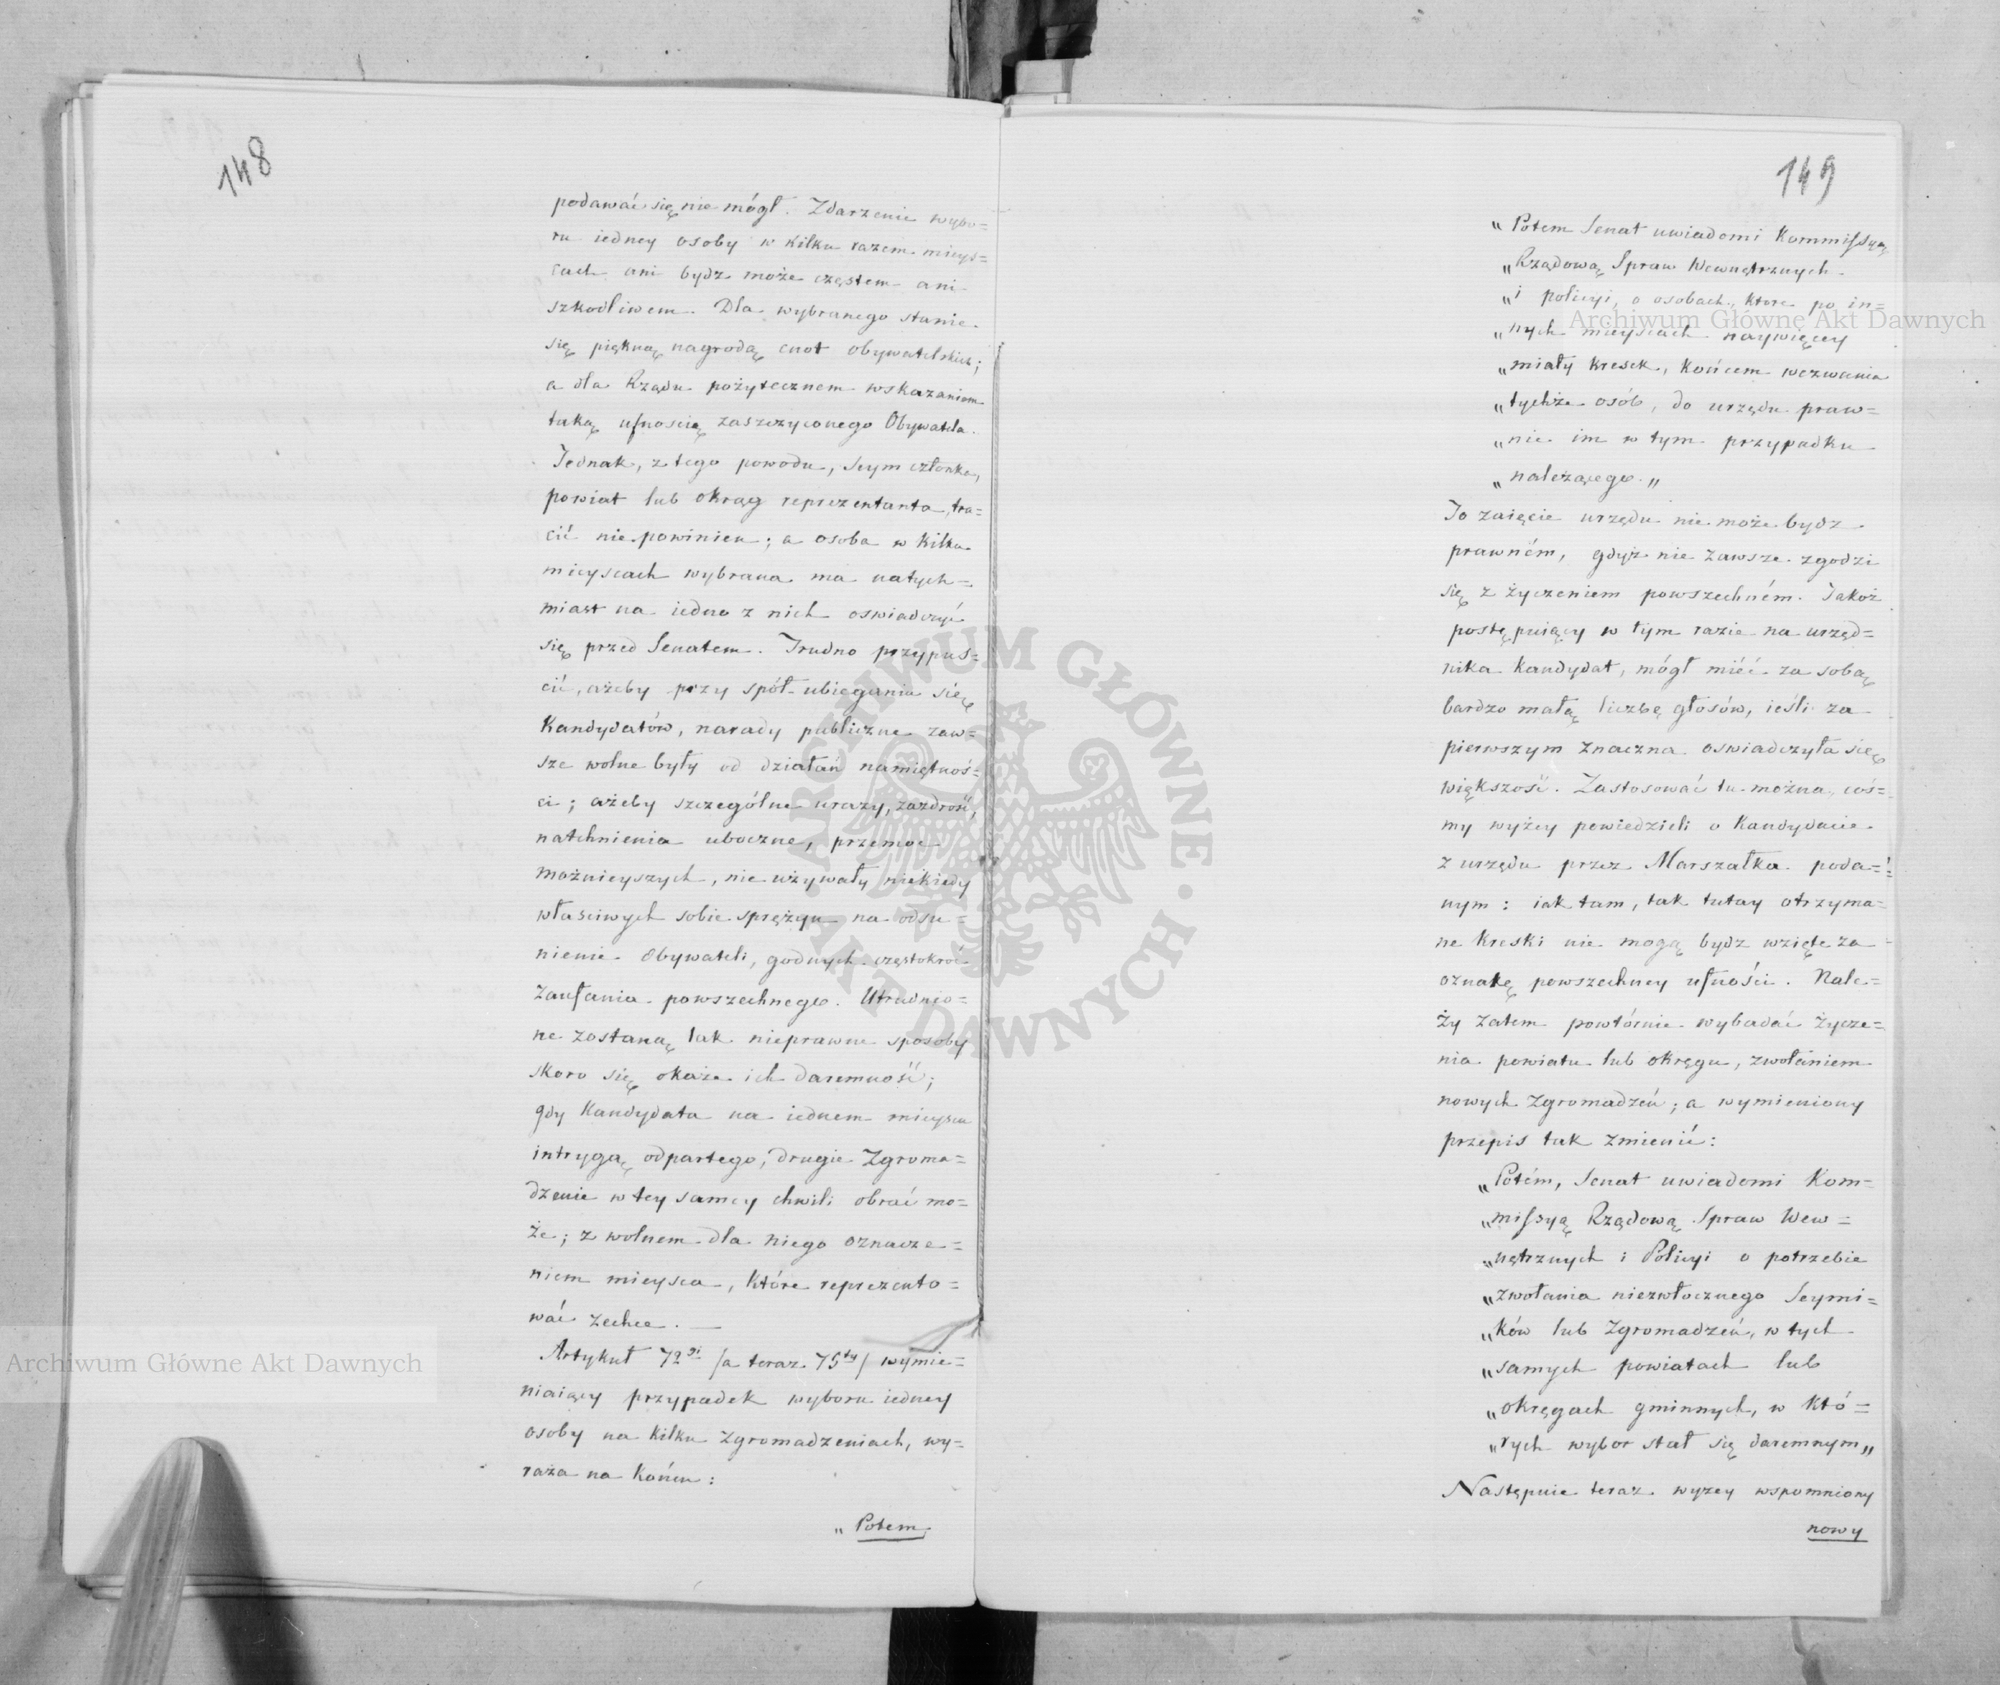 148
podawać się nie mógł. Zdarzenie wybo=
ru iedney osoby w kilku razem mieys=
cach ani bydz może częstem ani
szkodliwem. Dla wybranego stanie
się piękną nagrodą cnot obywatelskich;
a dla Rządu pożytecznem wskazaniem
taką ufnoscią zaszczyconego Obywatela.
Jednak, z tego powodu, Seym członka,
powiat lub okrąg reprezentanta, tra=
cić nie powinien; a osoba w kilku
mieyscach wybrana ma natych=
miast na iedno z nich oswiadczyć
się przed Senatem. Trudno przypus=
cić, ażeby przy spół-ubieganiu się
Kandydatów, narady publiczne zaw=
sze wolne były od działań namiętnoś=
ci; ażeby szczególne urazy, zazdrość,
natchnienia uboczne, przemoc
możnieyszych, nie używały niekiedy
właściwych sobie sprężyn na odsu=
nienie Obywateli, godnych częstokroć
zaufania powszechnego. Utrudnio=
ne zostaną tak nieprawne sposoby
skoro się okaże ich daremność;
gdy Kandydata na iednem mieyscu
intrygą odpartego, drugie Zgroma=
dzenie w tey samey chwili obrać mo=
że; z wolnem dla niego oznacze=
niem mieysca, które reprezento=
wać zechce. —
Artykuł 72gi /a teraz 75ty/ wymie=
niaiący przypadek wyboru iedney
osoby na kilku Zgromadzeniach, wy=
raża na końcu:
„ Potem
149
„ Potem Senat uwiadomi Kommissyą
„ Rządową Spraw Wewnętrznych
„ i policyi, o osobach, które po in=
„ nych mieyscach naywięcey
„ miały kresek, końcem wezwania
„ tychże osób, do urzędu praw=
„ nie im w tym przypadku
„ należącego. „
To zaięcie urzędu nie może bydz
prawném, gdyż nie zawsze zgodzi
się z życzeniem powszechném. Jakoż
postępuiący w tym razie na urzęd=
nika kandydat, mógł mieć za sobą
bardzo małą liczbę głosów, ieśli za
pierwszym znaczna oswiadczyła się
większość. Zastosować tu można, coś=
my wyżey powiedzieli o Kandydacie
z urzędu przez Marszałka poda=
nym: iak tam, tak tutay otrzyma=
ne kreski nie mogą bydz wzięte za
oznakę powszechney ufności. Nale=
ży zatem powtórnie wybadać życze=
nia powiatu lub okręgu, zwołaniem
nowych Zgromadzeń; a wymieniony
przepis tak zmienić:
„ Potém, Senat uwiadomi Kom=
„ missyą Rządową Spraw Wew=
„ nętrznych i Policyi o potrzebie
„ zwołania niezwłocznego Seymi=
„ ków lub Zgromadzeń, w tych
„ samych powiatach lub
„ okręgach gminnych, w któ=
„ rych wybor stał się daremnym „
Następnie teraz wyzey wspomniony
nowy
Archiwum Główne Akt Dawnych
Archiwum Główne Akt Dawnych
ARCHIWUM GŁÓWNE · AKT DAWNYCH ·